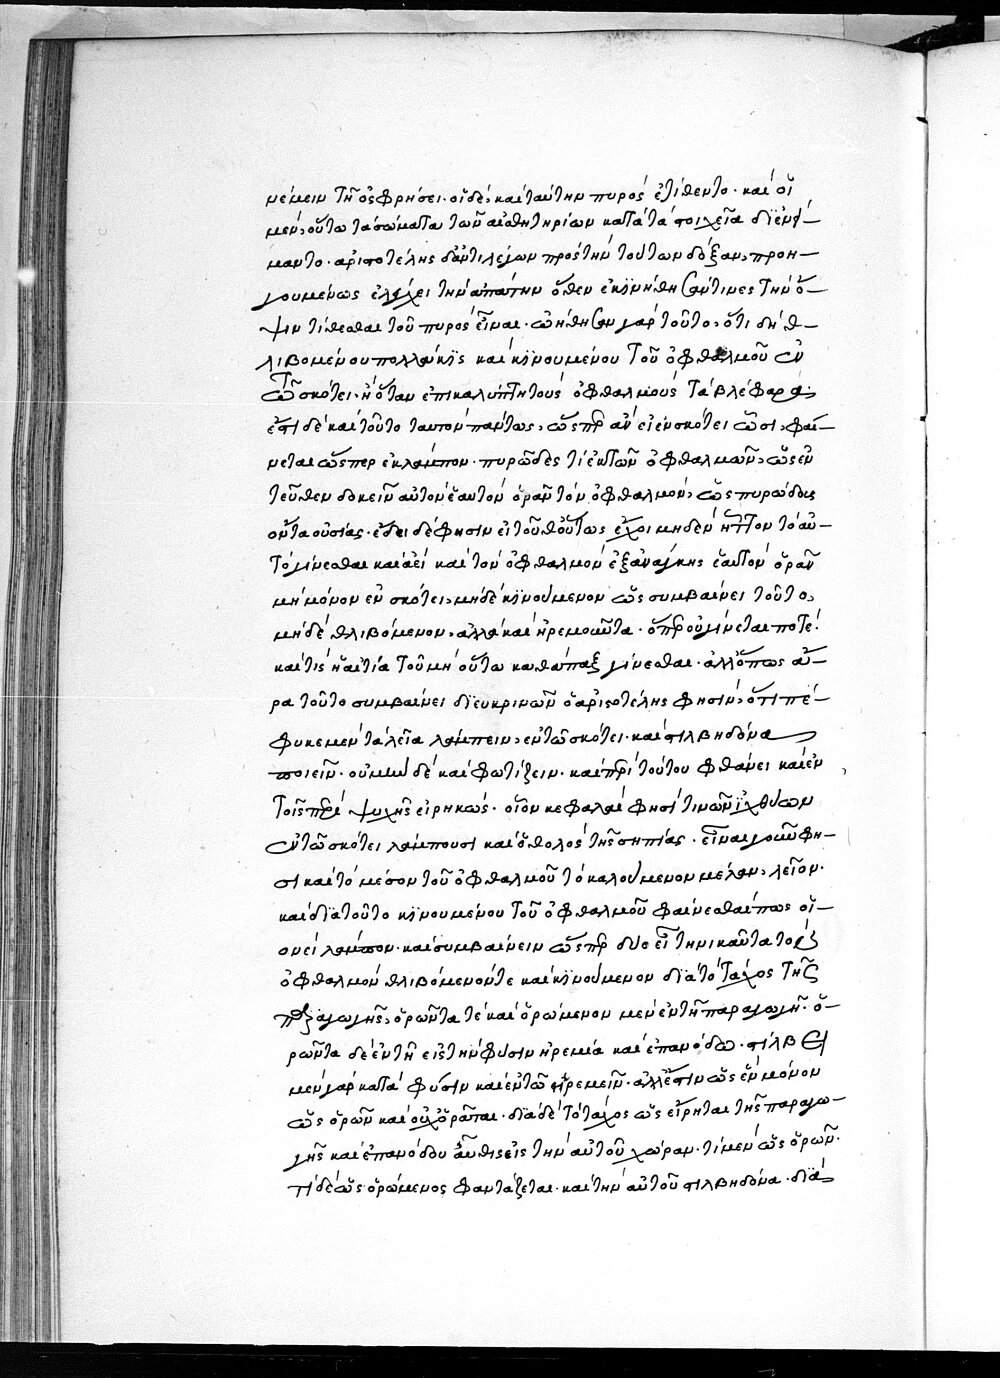 νέμειν τῇ ὀσφρήσει· οἱ δὲ, καὶ ταύτην πυρὸς ἐτίθεντο· καὶ οἱ
μὲν, οὕτω τὰ σώματα τῶν αἰσθητηρίων κατὰ τὰ στοιχεῖα διενεί-
μαντο· ἀριστοτέλης δ' ἀντιλέγων πρὸς τὴν τούτων δόξαν, προη-
γουμένως ἐλέγχει τὴν ἀπάτην ὅθεν ἐκινήθησάν τινες τὴν ὄ-
ψιν τίθεσθαι τοῦ πυρὸς εἶναι· ᾠήθησαν γὰρ τοῦτο, ὅτι δὴ θ-
λιβομένου πολλάκις καὶ κινουμένου τοῦ ὀφθαλμοῦ ἐν
τῷ σκότει· ἢ ὅταν ἐπικαλύπτῃ τοὺς ὀφθαλμοὺς τὰ βλέφαρα·
ἔστι δὲ καὶ τοῦτο ταυτὸν πάντως, ὥσπερ ἂν εἰ ἐν σκότει ὦσι, φαί-
νεται ὥσπερ ἐκλάμπον· πυρῶδές τι ἐκ τῶν ὀφθαλμῶν, ὡς ἐν
τεῦθεν δοκεῖν αὐτὸν ἑαυτὸν ὁρᾶν τὸν ὀφθαλμὸν, ὡς πυρώδους
ὄντα οὐσίας· ἔδει δέ φησιν εἰ τοῦθ' οὕτως ἔχοι μηδὲν ἧττον τὸ αὐ-
τὸ γίνεσθαι καὶ ἀεὶ καὶ τὸν ὀφθαλμὸν ἐξ ἀνάγκης ἑαυτὸν ὁρᾶν
μὴ μόνον ἐν σκότει, μηδὲ κινούμενον ὡς συμβαίνει τοῦτο,
μηδὲ θλιβόμενον, ἀλλὰ καὶ ἠρεμοῦντα· ὅπερ οὐ γίνεται ποτέ·
καὶ τίς ἡ αἰτία τοῦ μὴ οὕτω καθάπαξ γίνεσθαι· ἀλλ' ὅπως ἄ-
ρα τοῦτο συμβαίνει διευκρινῶν ὁ ἀριστοτέλης φησὶν, ὅτι πέ-
φυκε μὲν τὰ λεῖα λάμπειν, ἐν τῷ σκότει· καὶ στιλβηδόνα
ποιεῖν· οὐ μὴν δὲ καὶ φωτίζειν· καὶ περὶ τούτου φθάνει καὶ ἐν
τοῖς περὶ ψυχῆς εἰρηκώς· οἷον κεφαλαὶ φησὶ τινῶν ἰχθύων
ἐν τῷ σκότει λάμπουσι καὶ ὁ θολὸς τῆς σηπίας· εἶναι γοῦν φη-
σι καὶ τὸ μέσον τοῦ ὀφθαλμοῦ τὸ καλούμενον μέλαν, λεῖον·
καὶ διὰ τοῦτο κινουμένου τοῦ ὀφθαλμοῦ φαίνεσθαί πως οἱ-
ονεὶ λάμπον· καὶ συμβαίνειν ὥσπερ δύο εἶναι τηνικαῦτα τὸν
ὀφθαλμὸν θλιβόμενόν τε καὶ κινούμενον διὰ τὸ τάχος τῆς
παραγωγῆς, ὁρῶντα τὲ καὶ ὁρώμενον μὲν ἐν τῇ παραγωγῇ· ὁ-
ρῶντα δὲ ἐν τῇ εἰς τὴν φύσιν ἠρεμία καὶ ἐπανόδω· στίλβει
μὲν γὰρ κατὰ φύσιν καὶ ἐν τῷ ἠρεμεῖν· ἀλλ' ἔστιν ὡς ἓν μόνον
ὡς ὁρῶν καὶ οὐχ ὁρᾶται· διὰ δὲ τὸ τάχος ὡς εἴρηται τῆς παραγω-
γῆς καὶ ἐπανόδου αὖθις εἰς τὴν αὐτοῦ χώραν· τὶ μὲν ὡς ὁρῶν·
τὶ δὲ ὡς ὁρώμενος φαντάζεται· καὶ τὴν αὐτοῦ στιλβηδόνα· διὰ